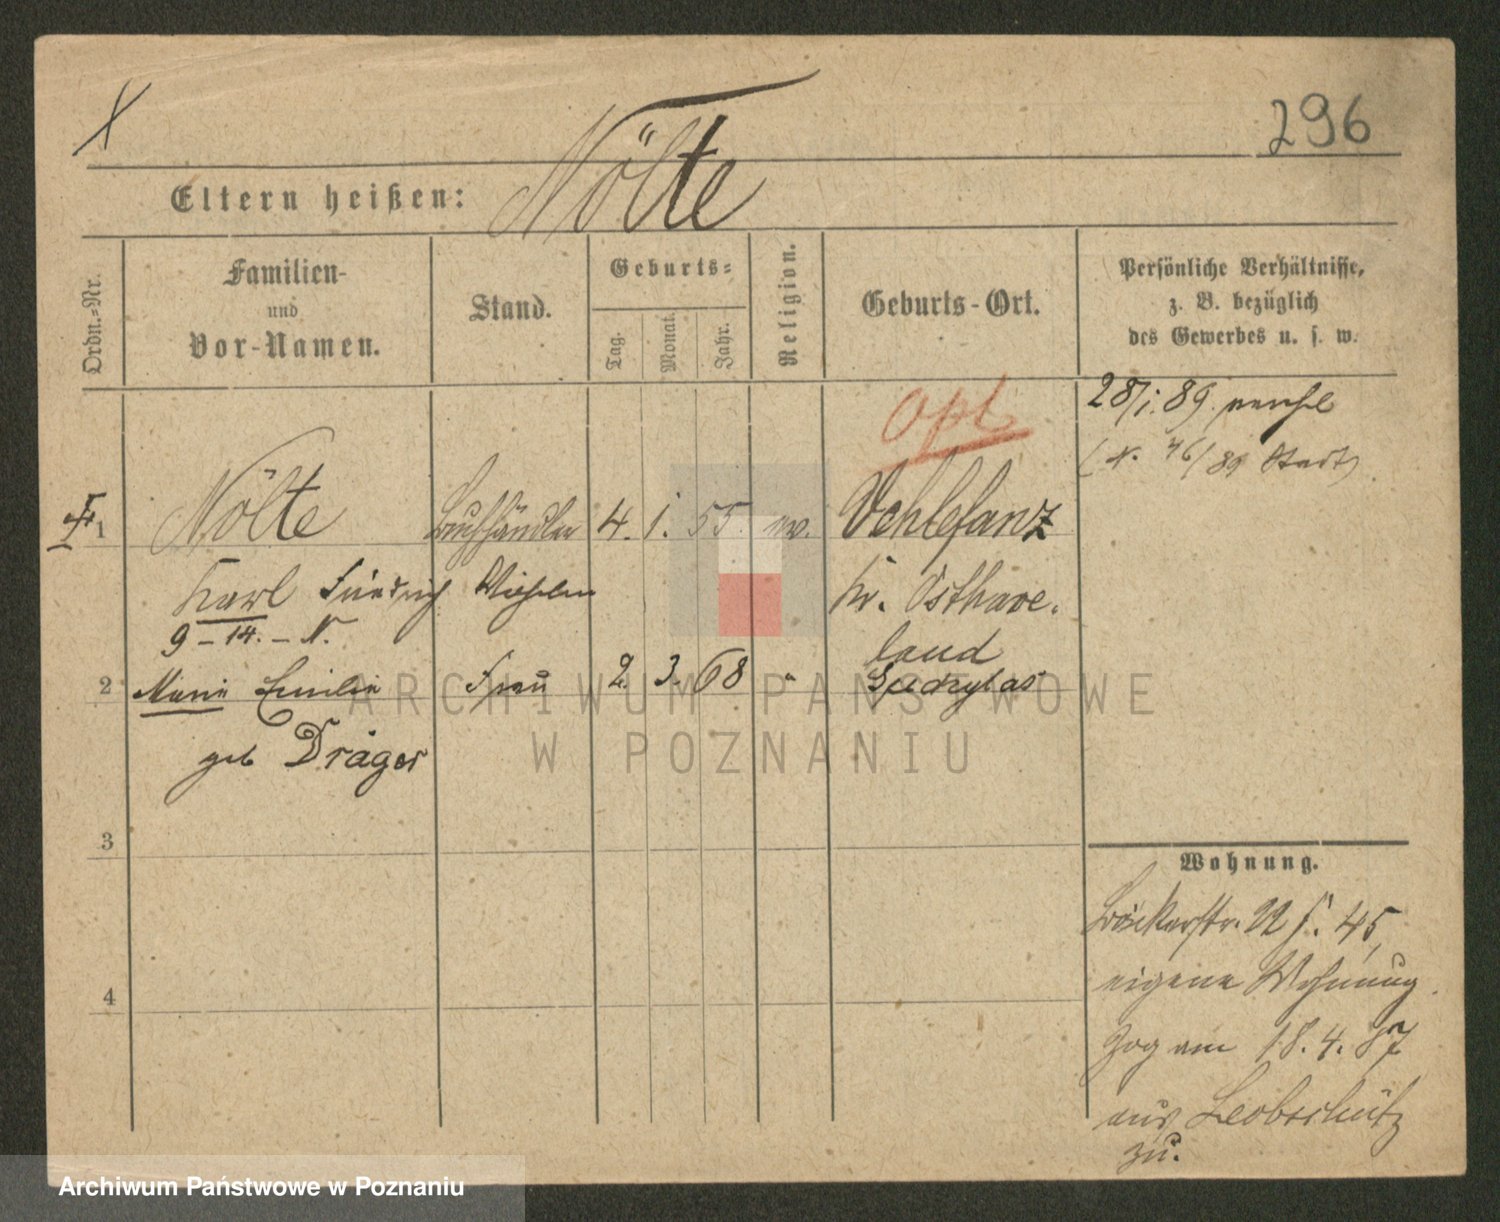 296
Eltern heißen: Nölte
Ordn.-Nr.
Familien-
und
Vor-Namen.
Stand.
Geburts-
Tag.
Monat.
Jahr.
Religion.
Geburts-Ort.
Persönliche Verhältnisse,
z. B. bezüglich
des Gewerbes u. s. w.
28/1. 89.
Opt
1 Nölte Buchhändler 4. 1. 55 ev. Vehlefanz
Karl Friedrich Wilhelm Kr. Osthave-
9 - 14. - N. land
2 Marie Emilie Frau 2. 3. 68 "
geb Dräger
3
4
Wohnung.
Bäckerstr. 22 45,
eigene Wohnung.
Zog am 18. 4. 87
aus Leobschütz
zu.
ARCHIWUM PAŃSTWOWE
W POZNANIU
Archiwum Państwowe w Poznaniu